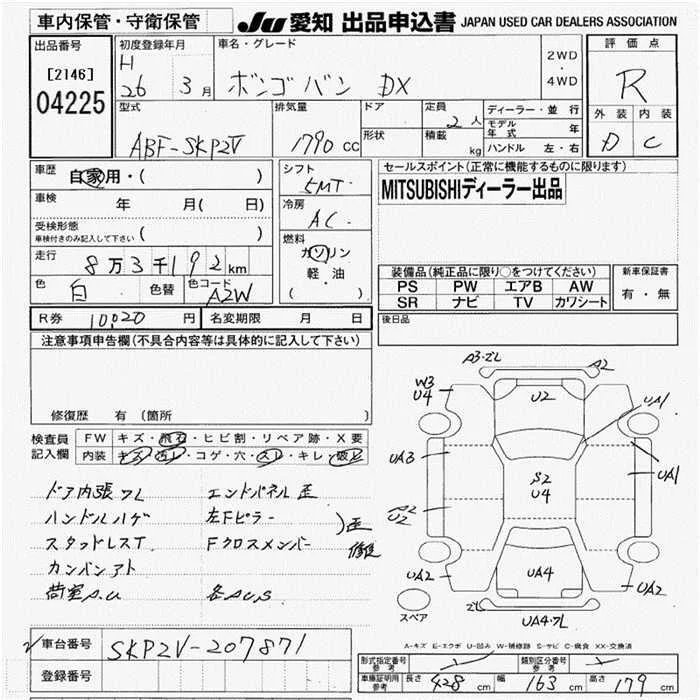 車内保管・守衛保管
JU 愛知 出品申込書 JAPAN USED CAR DEALERS ASSOCIATION
出品番号
[2146]
04225
初度登録年月
H 26 3月
車名・グレード
ボンゴバン DX
2WD
・
4WD
評価点
R
外装 内装
D C
型式
ABF-SKP2V
排気量
1790 cc
ドア
形状
定員
2人
積載
kg
ディーラー・並行
モデル年式 年
ハンドル 左・右
車歴
自家用・( )
車検 年 月( 日)
受検形態
車検付きのみ記入して下さい ( )
走行
8万3千192km
色 白 色替 色コード A2W
シフト
5MT
冷房
AC
燃料
ガソリン
軽・油
( )
セールスポイント(正常に機能するものに限ります)
MITSUBISHIディーラー出品
装備品(純正品に限り○をつけてください)
PS PW エアB AW
SR ナビ TV カワシート
新車保証書
有・無
R券 10,020 円 名変期限 月 日
後日品
注意事項申告欄(不具合内容等は具体的に記入して下さい)
修復歴 有 (箇所 )
検査員記入欄
FW キズ・飛石・ヒビ割・リペア跡・X要
内装 キズ・汚レ・コゲ・穴・スレ・キレ・破レ
ドア内張ワレ エンドパネル歪
ハンドルハゲ 左Fピラー
スタッドレスT. Fクロスメンバー
歪
修
カンバンアト
荷室A.U 各AUS
A3・ワレ
A2
W3
U4
U2
UA1
UA3
S2
U4
UA1
A2
U2
UA2
UA4
UA2
ワレ
UA4・ワレ
スペア
A-キズ E-エクボ U-凹み W-補修跡 S-サビ C-腐食 XX-交換済
車台番号 SKP2V-207871
登録番号
型式指定番号 参考
類別区分番号 参考
車庫証明用 参考 長さ 428 cm 幅 163 cm 高さ 179 cm